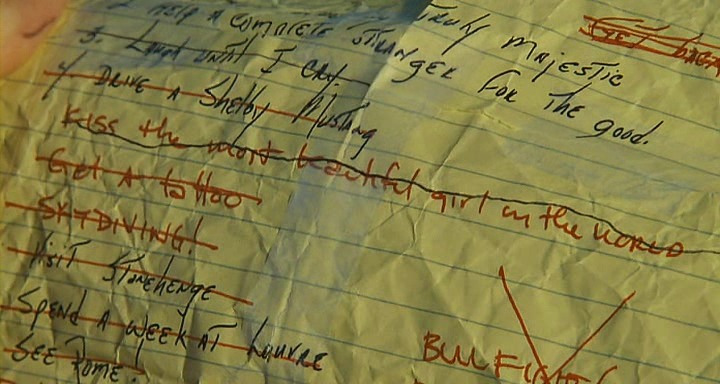 Truly majestic
2. Help a complete stranger for the good.
3. Laugh until I cry
4) Drive a Shelby Mustang
Kiss the most beautiful girl in the world
Get a tattoo
SKYDIVING!
Visit Stonehenge
Spend a week at Louvre
See Rome!
BULL